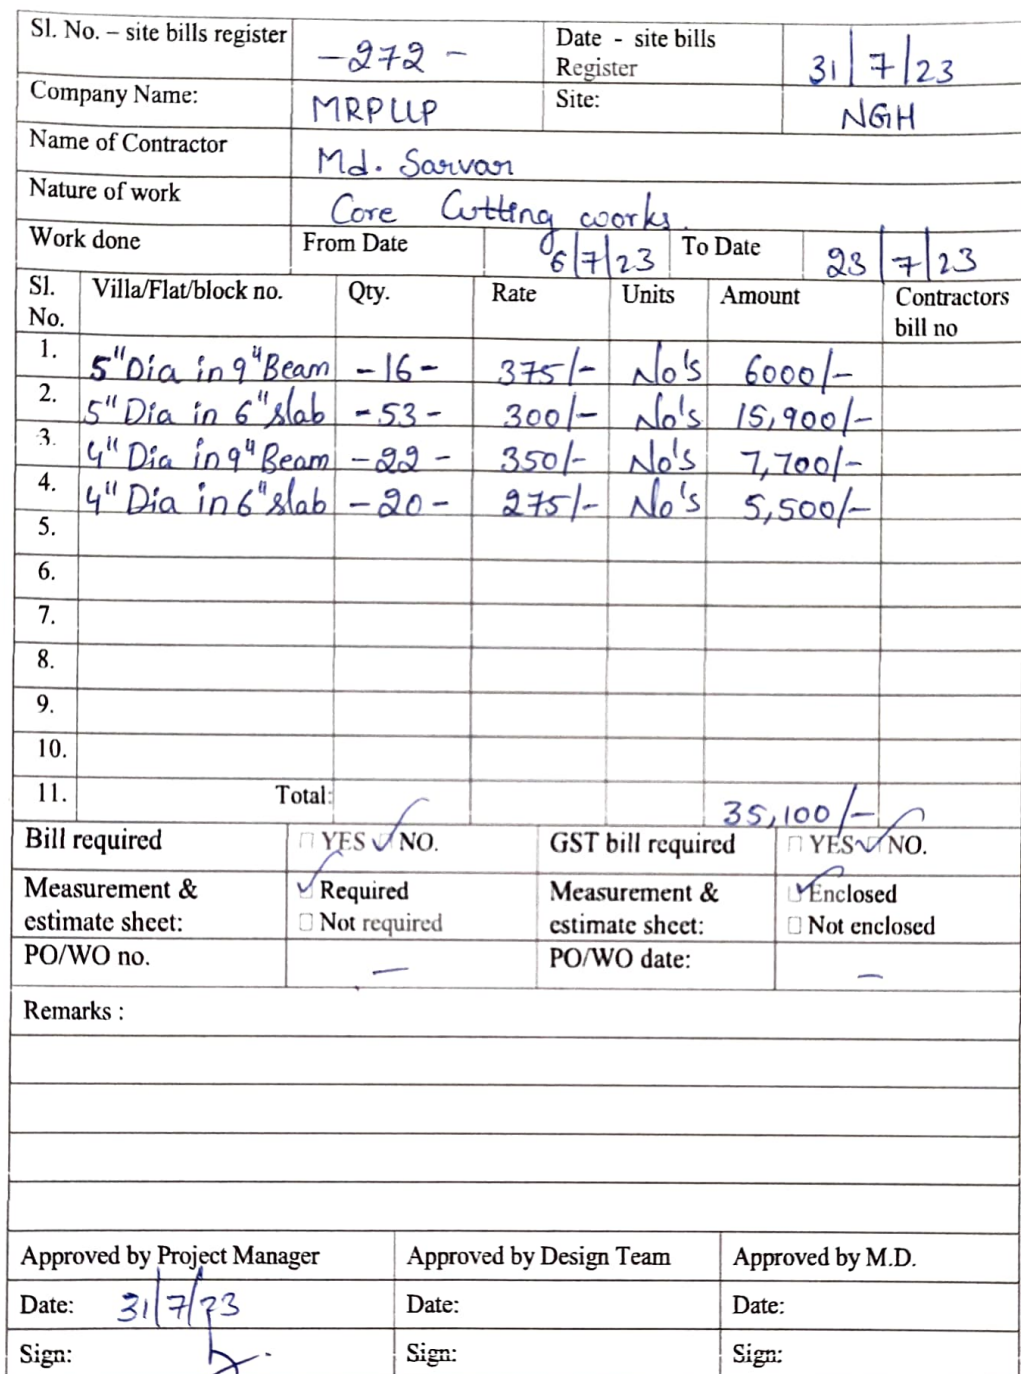 Sl. No. – site bills register -272- Date - site bills Register 31/7/23
Company Name: MRPLLP Site: NGH
Name of Contractor Md. Sarvar
Nature of work Core Cutting works.
Work done From Date 6/7/23 To Date 23/7/23
Sl. No. Villa/Flat/block no. Qty. Rate Units Amount Contractors bill no
1. 5" Dia in 9" Beam -16- 375/- No's 6000/-
2. 5" Dia in 6" slab -53- 300/- No's 15,900/-
3. 4" Dia in 9" Beam -22- 350/- No's 7,700/-
4. 4" Dia in 6" slab -20- 275/- No's 5,500/-
5.
6.
7.
8.
9.
10.
11. Total: 35,100/-
Bill required YES NO. GST bill required YES NO.
Measurement & estimate sheet: Required Not required Measurement & estimate sheet: Enclosed Not enclosed
PO/WO no. - PO/WO date: -
Remarks :
Approved by Project Manager Approved by Design Team Approved by M.D.
Date: 31/7/23 Date: Date:
Sign: Sign: Sign: